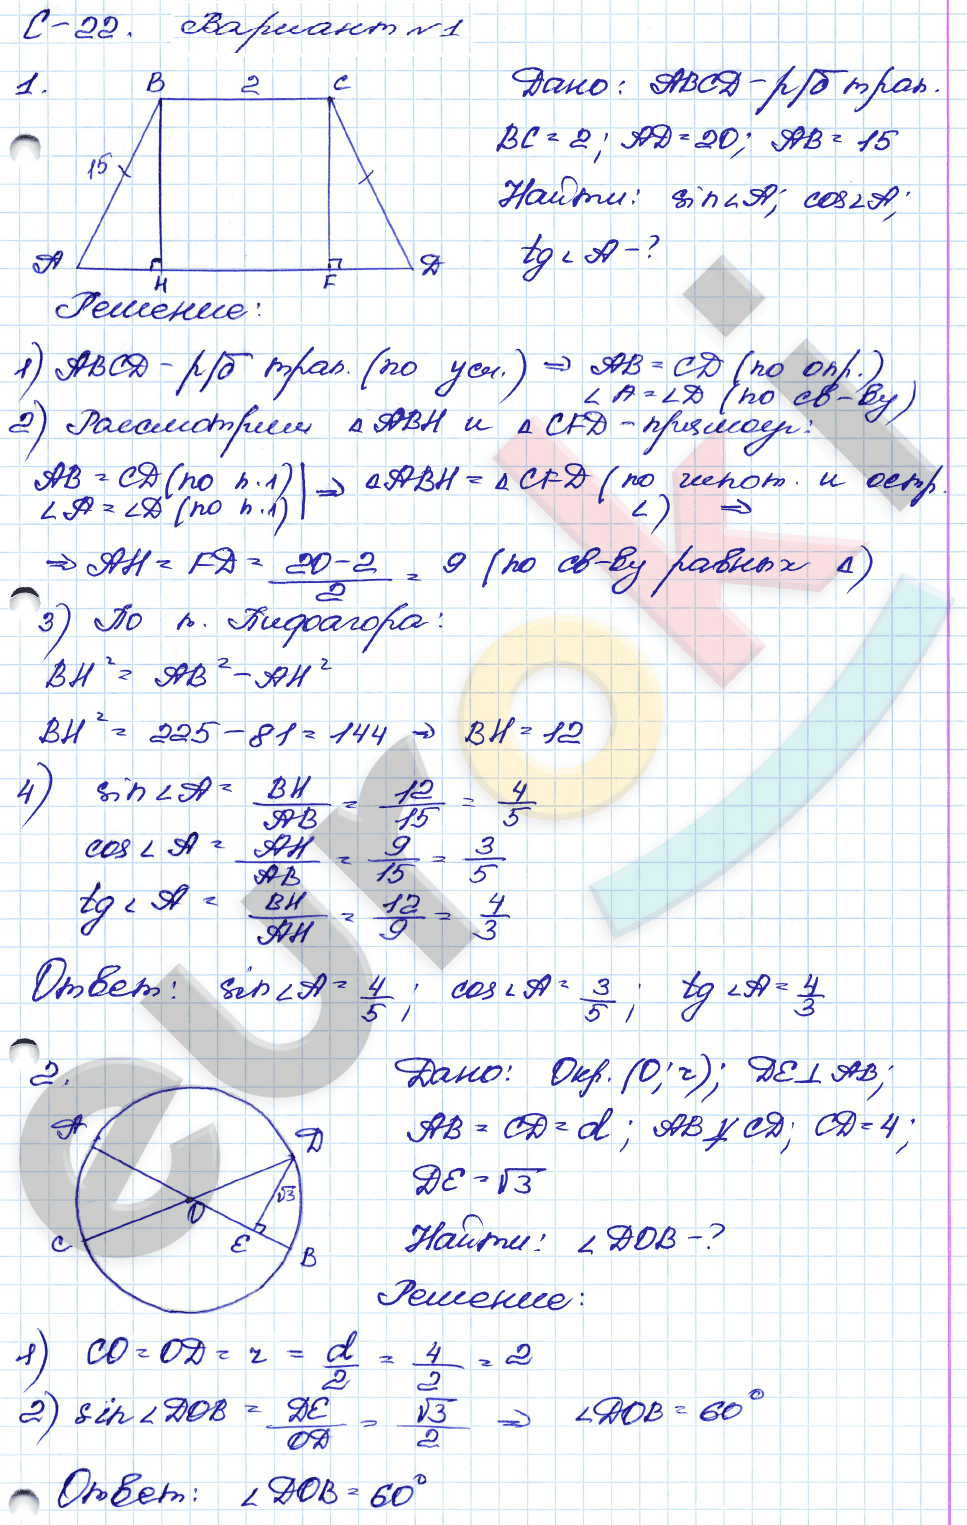 С-22. Вариант №1
1.
B 2 C
15
A H F D
Дано: ABCD - р/б трап.
BC = 2; AD = 20; AB = 15
Найти: sin∠A; cos∠A;
tg∠A - ?
Решение:
1) ABCD - р/б трап. (по усл.) ⇒ AB = CD (по опр.)
∠A = ∠D (по св-ву)
2) Рассмотрим △ABH и △CFD - прямоуг:
AB = CD (по п.1) | ⇒ △ABH = △CFD (по гипот. и остр.
∠A = ∠D (по п.1) | ∠) ⇒
⇒ AH = FD = (20-2)/2 = 9 (по св-ву равных △)
3) По т. Пифагора:
BH² = AB² - AH²
BH² = 225 - 81 = 144 ⇒ BH = 12
4) sin∠A = BH/AB = 12/15 = 4/5
cos∠A = AH/AB = 9/15 = 3/5
tg∠A = BH/AH = 12/9 = 4/3
Ответ: sin∠A = 4/5; cos∠A = 3/5; tg∠A = 4/3
2.
A D
√3
O
C E B
Дано: Окр. (O; r); DE⊥AB;
AB = CD = d; AB ∦ CD; CD = 4;
DE = √3
Найти: ∠DOB - ?
Решение:
1) CO = OD = r = d/2 = 4/2 = 2
2) sin∠DOB = DE/OD = √3/2 ⇒ ∠DOB = 60°
Ответ: ∠DOB = 60°
euroki